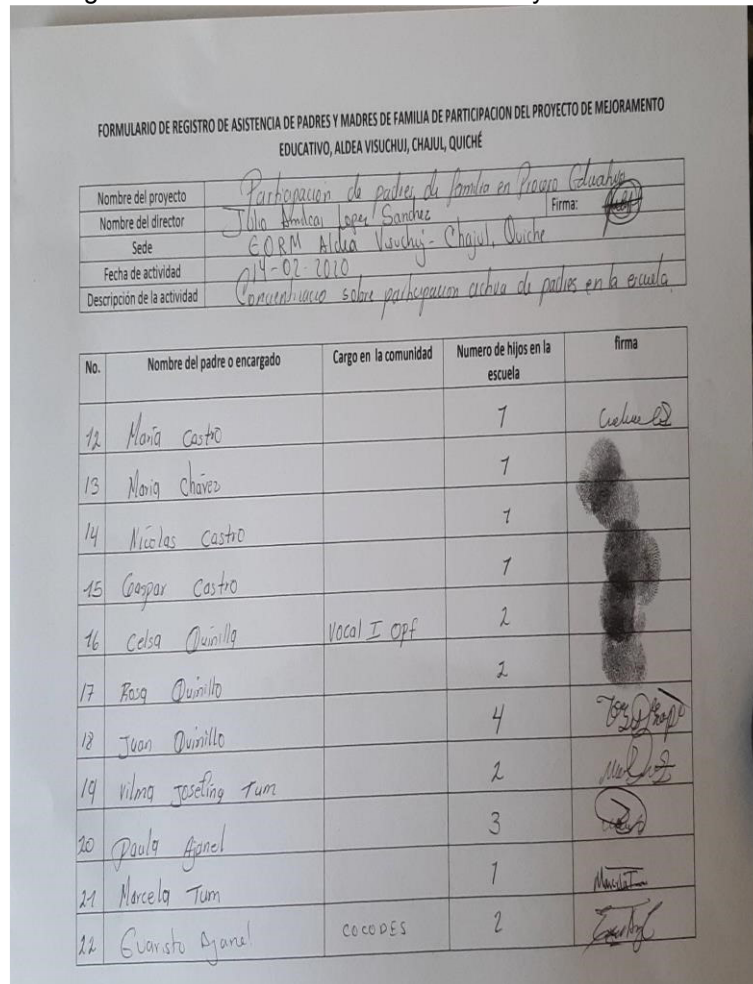 FORMULARIO DE REGISTRO DE ASISTENCIA DE PADRES Y MADRES DE FAMILIA DE PARTICIPACION DEL PROYECTO DE MEJORAMENTO
EDUCATIVO, ALDEA VISUCHUJ, CHAJUL, QUICHÉ
Nombre del proyecto Participacion de padres de familia en Proceso Educativo
Nombre del director Julio Amilcar Lopez Sanchez Firma:
Sede EORM Aldea Visuchuj - Chajul, Quiche
Fecha de actividad 14-02-2020
Descripción de la actividad sobre participacion activa de padres en la escuela
No. Nombre del padre o encargado Cargo en la comunidad Numero de hijos en la escuela firma
12 Maria Castro 1
13 Maria Chávez 1
14 Nicolas Castro 1
15 Gaspar Castro 1
16 Celsa Quinilla Vocal I Opf 2
17 Rosa Quinillo 2
18 Juan Quinillo 4
19 Vilma Josefina Tum 2
20 Paula Ajanel 3
21 Marcela Tum 1 Marcela T
22 Evaristo Ajanel COCODES 2